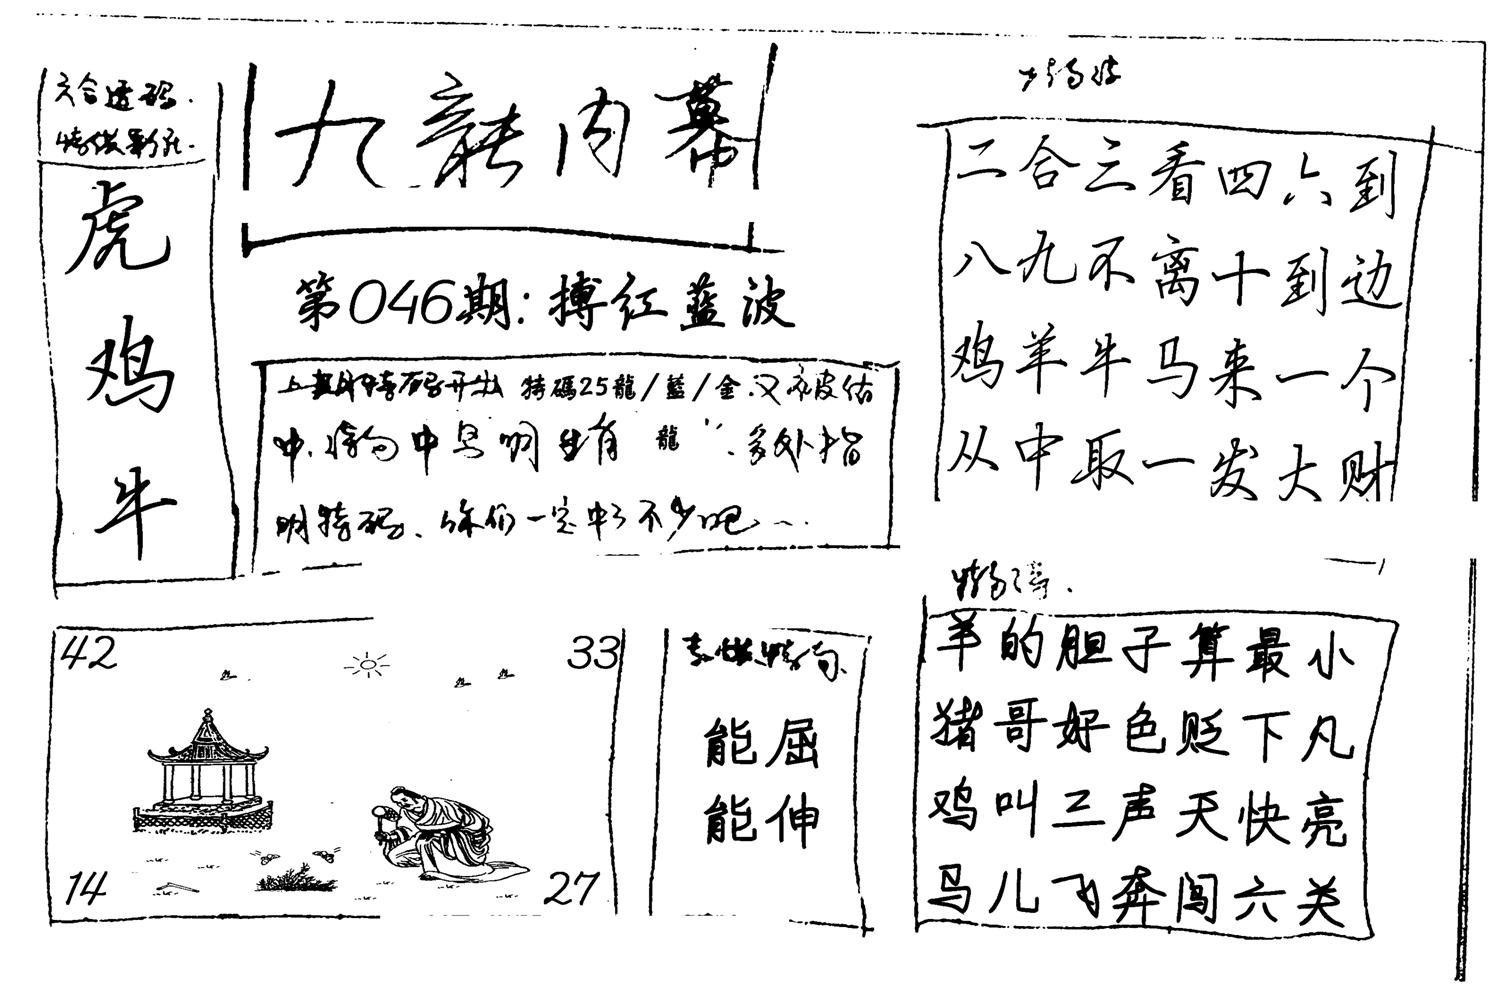 六合透码.
虎
鸡
牛
九龍内幕
第046期:搏红蓝波
上期特码开出 特碼25龍/藍/金.又被估
中.特句中早明生肖"龍".另外指
明特码、你们一定中了不少吧...
二合三看四六到
八九不离十到边
鸡羊牛马来一个
从中取一发大财
42
33
14
27
能屈
能伸
羊的胆子算最小
猪哥好色贬下凡
鸡叫三声天快亮
马儿飞奔闯六关